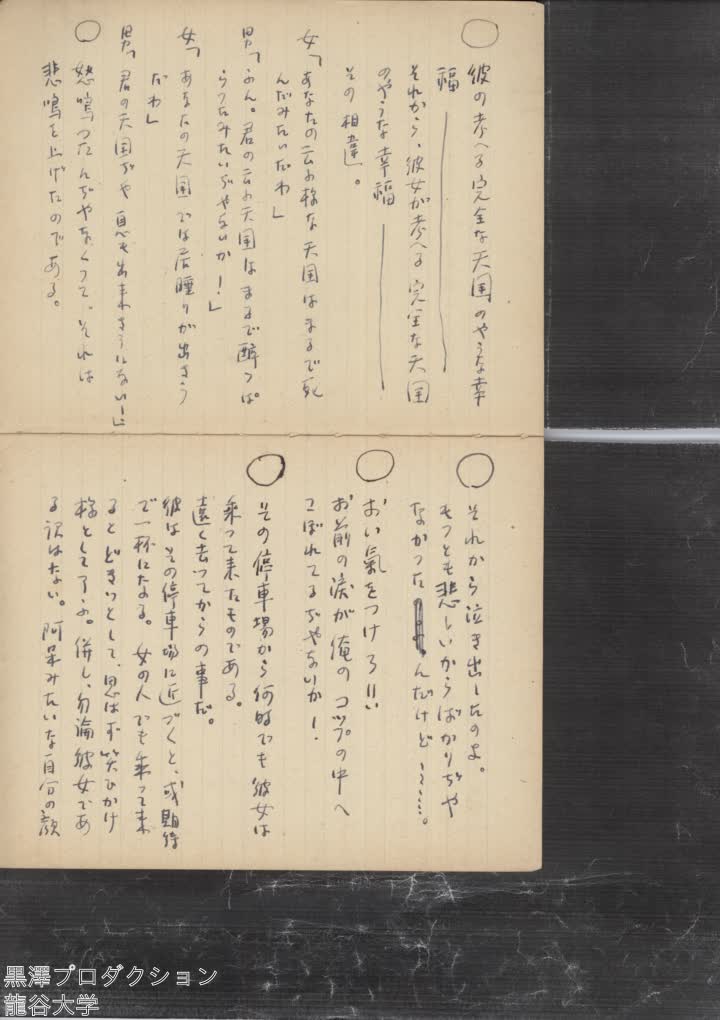 ○
彼の考へる完全な天国のやうな幸
福――
それから、彼女が考へる完全な天国
のやうな幸福――
その相違。
女「あなたの云ふ様な天国はまるで死
んだみたいだわ」
男「ふん。君の云ふ天国はまるで酔つぱ
らつたみたいぢやないか!」
女「あなたの天国では居睡りが出さう
だわ」
男「君の天国ぢや息も出来さうにない!」
○
怒鳴つたんぢやなくつて、それは
悲鳴を上げたのである。
○
それから泣き出したのよ。
もつとも悲しいからばかりぢや
なかつたんだけど……。
○
おい氣をつけろ!!
お前の涙が俺のコップの中へ
こぼれてるぢやないか!
○
その停車場から何時でも彼女は
乗つて来たものである。
遠く去つてからの事だ。
彼はその停車場に近づくと、或期待
で一杯になる。女の人でも乗つて来
るとどきつとして、思はず笑ひかけ
様として了ふ。併し、勿論彼女であ
る訳はない。阿呆みたいな自分の顔
黒澤プロダクション
龍谷大学